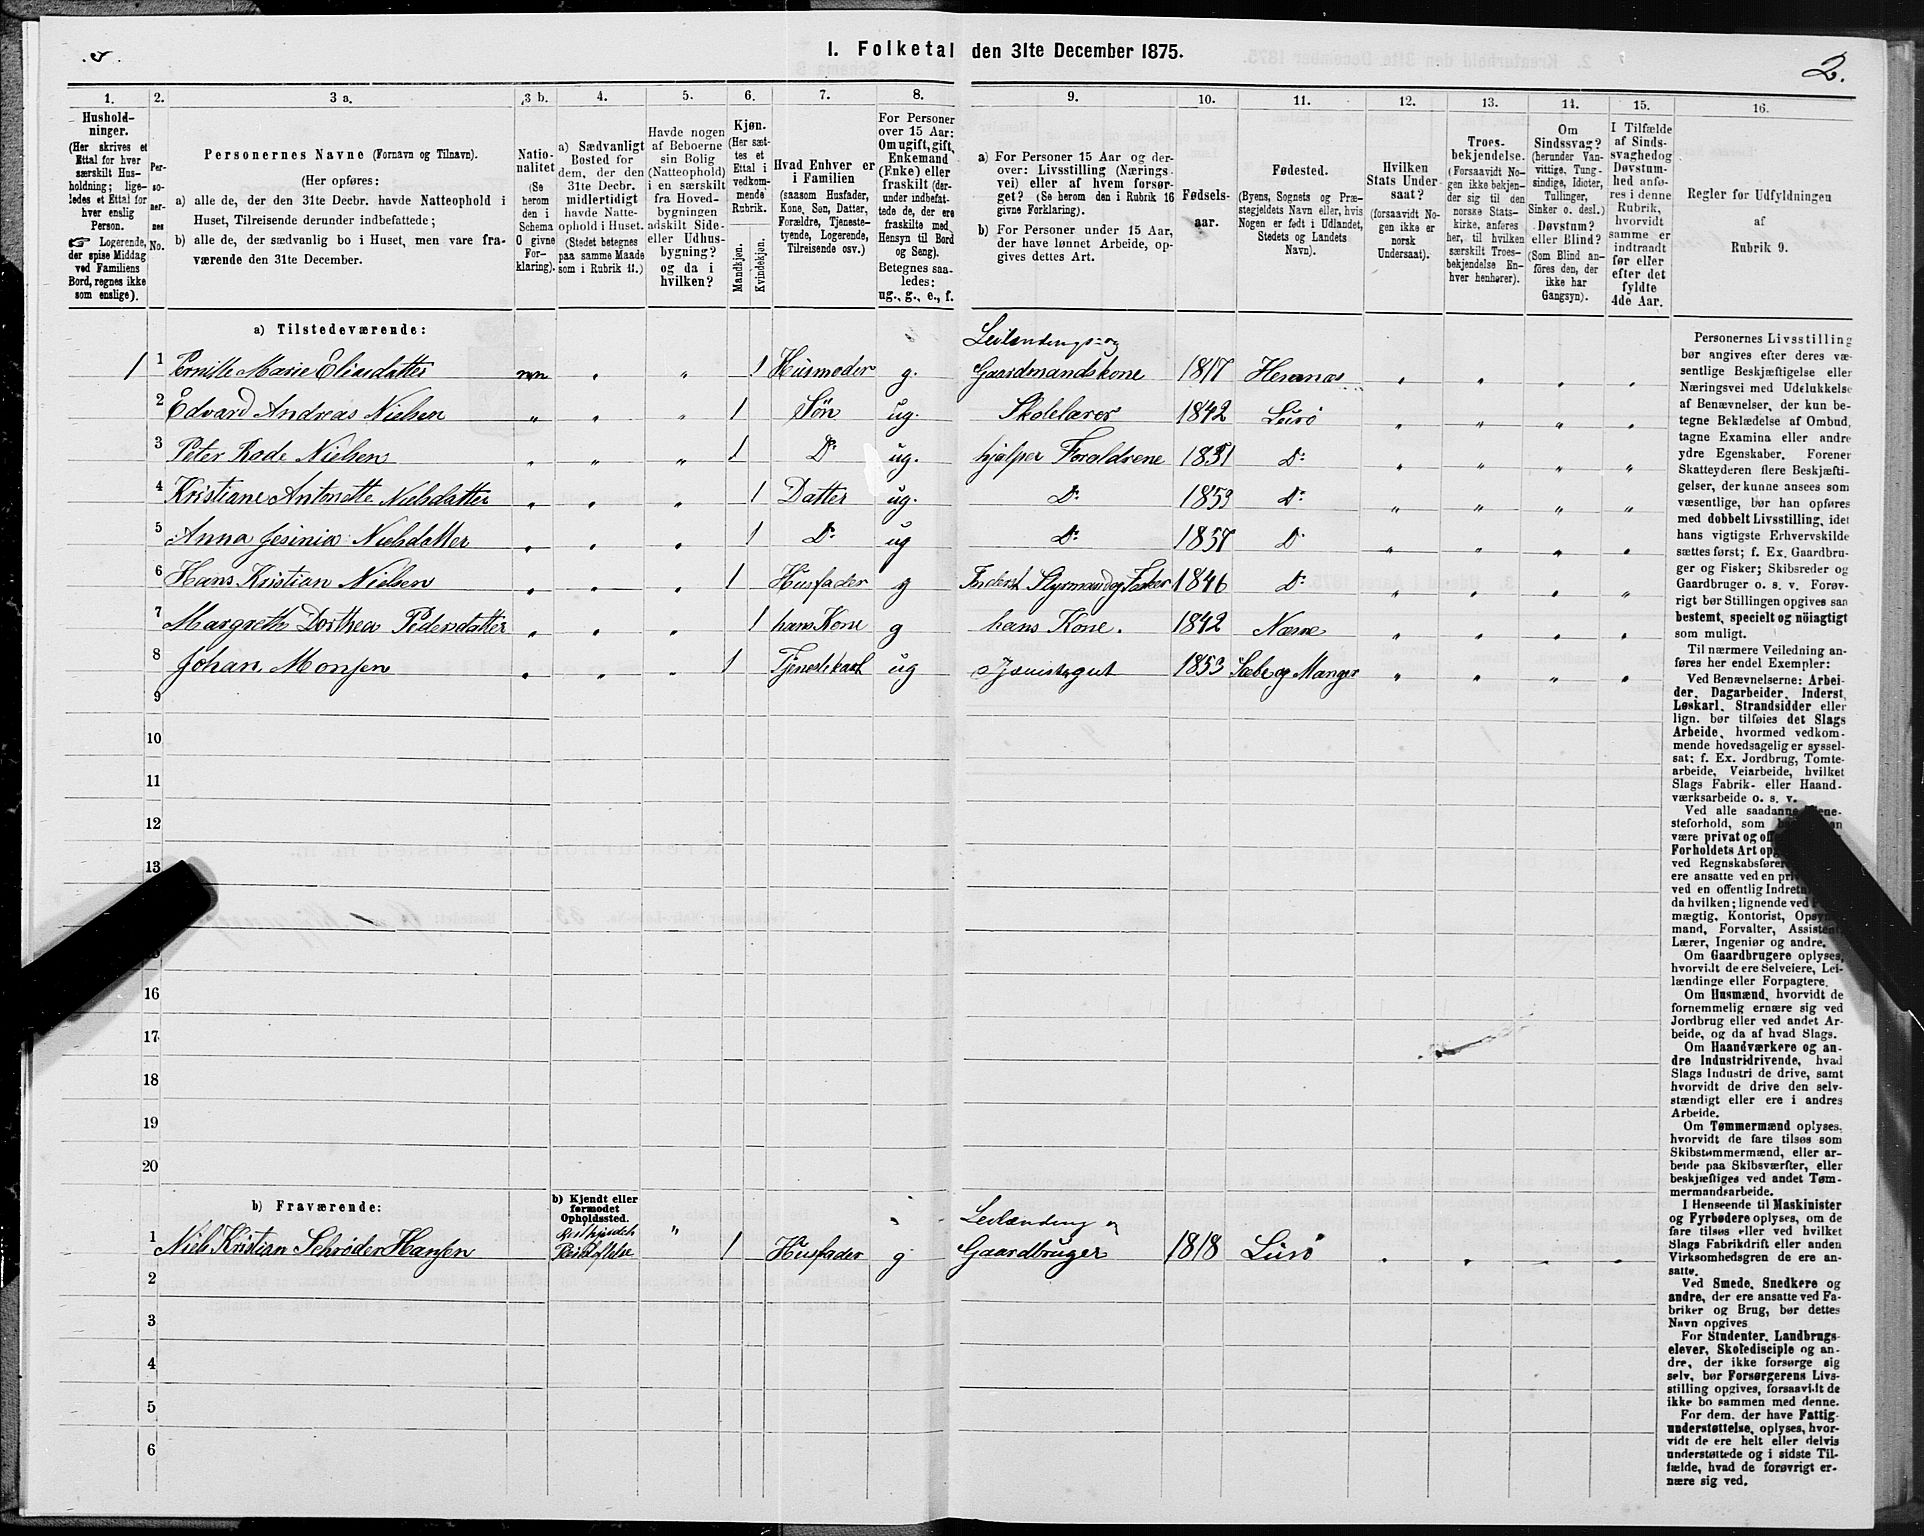 I. Folketal den 31te December 1875.
2.
1.
Hushold-
ninger.
(Her skrives et
Ettal for hver
særskilt Hus-
holdning; lige-
ledes et Ettal for
hver enslig
Person.
☞ Logerende,
der spise Middag
ved Familiens
Bord, regnes ikke
som enslige).
2.
Per-
so-
ner-
nes
No.
3 a.
Personernes Navne (Fornavn og Tilnavn).
(Her opføres:
a) alle de, der den 31te Decbr. havde Natteophold i
Huset, Tilreisende derunder indbefattede;
b) alle de, der sædvanlig bo i Huset, men vare fra-
værende den 31te December.
3 b.
Natio-
nalitet
(Se
herom
den i
Schema
O givne
For-
klaring).
4.
a) Sædvanligt
Bosted for
dem, der den
31te Decbr.
midlertidigt
havde Natte-
ophold i Huset.
(Stedet betegnes
paa samme Maade
som i Rubrik 11.)
5.
Havde nogen
af Beboerne
sin Bolig
(Natteophold)
i en særskilt
fra Hoved-
bygningen
adskilt Side-
eller Udhus-
bygning?
og da i
hvilken?
6.
Kjøn.
(Her sæt-
tes et
Ettal i
vedkom-
mende
Rubrik.
Mandkjøn.
Kvindekjøn.
7.
Hvad Enhver er
i Familien
(saasom Husfader,
Kone, Søn, Datter,
Forældre, Tjeneste-
tyende, Logerende,
Tilreisende osv.)
8.
For Personer
over 15 Aar:
Om ugift, gift,
Enkemand
(Enke) eller
fraskilt (der-
under indbefat-
tede de, der ere
fraskilte med
Hensyn til Bord
og Seng).
Betegnes saa-
ledes:
ug., g., e., f.
9.
a) For Personer 15 Aar og der-
over: Livsstilling (Nærings-
vei) eller af hvem forsør-
get? (Se herom den i Rubrik 16
givne Forklaring).
b) For Personer under 15 Aar,
der have lønnet Arbeide, op-
gives dettes Art.
10.
Fødsels-
aar.
11.
Fødested.
(Byens, Sognets og Præ-
stegjeldets Navn eller, hvis
Nogen er født i Udlandet,
Stedets og Landets
Navn).
12.
Hvilken
Stats Under-
saat?
(forsaavidt No-
gen ikke er
norsk
Undersaat).
13.
Troes-
bekjendelse.
(Forsaavidt No-
gen ikke bekjen-
der sig til den
norske Stats-
kirke, anføres
her, til hvilken
særskilt Troes-
bekjendelse En-
hver henhører).
14.
Om
Sindssvag?
(herunder Van-
vittige, Tung-
sindige, Idioter,
Tullinger,
Sinker o. desl.)
Døvstum?
eller Blind?
(Som Blind an-
føres den, der
ikke har
Gangsyn).
15.
I Tilfælde
af Sinds-
svaghed og
Døvstum-
hed anfø-
res i denne
Rubrik,
hvorvidt
samme er
indtraadt
før eller
efter det
fyldte
4de Aar.
16.
Regler for Udfyldningen
af
Rubrik 9.
a) Tilstedeværende:
Leilændings- og
1 1 Pernille Marie Eliasdatter nn „ „ 1 Husmoder g. Gaardmandskone 1817 Hemnæs „ „ „ „
2 Edvard Andreas Nielsen „ „ „ 1 Søn ug. Skolelærer 1842 Lurø „ „ „ „
3 Peter Rode Nielsen „ „ „ 1 D: ug. hjælper Forældrene 1851 D: „ „ „ „
4 Kristiane Antonette Nielsdatter „ „ „ 1 Datter ug. D: 1853 D: „ „ „ „
5 Anna Jesinia Nielsdatter „ „ „ 1 D: ug D: 1857 D: „ „ „ „
6 Hans Kristian Nielsen „ „ „ 1 Husfader g Inderst Styrmand og Fisker 1846 D: „ „ „ „
7 Margreth Dorthea Pedersdatter „ „ „ 1 hans Kone g hans Kone. 1842 Næsne „ „ „ „
8 Johan Monsen „ „ „ 1 Tjenestekarl ug Tjenistegut 1853 Sæbe og Manger „ „ „ „
9
10
11
12
13
16
17
18
19
20
b) Fraværende:
b) Kjendt eller
formodet
Opholdssted.
Leilænding og
1 Niels Kristian Schrøder Hansen „ 1 Husfader g Gaardbruger 1818 Lurø „ „ „ „
2
3
4
5
6
Personernes Livsstilling
bør angives efter deres væ-
sentlige Beskjæftigelse eller
Næringsvei med Udelukkelse
af Benævnelser, der kun be-
tegne Beklædelse af Ombud,
tagne Examina eller andre
ydre Egenskaber. Forener
Skatteyderen flere Beskjæfti-
gelser, der kunne ansees som
væsentlige, bør han opføres
med dobbelt Livsstilling, idet
hans vigtigste Erhvervskilde
sættes først; f. Ex. Gaardbru-
ger og Fisker; Skibsreder og
Gaardbruger o. s. v. Forøv-
rigt bør Stillingen opgives saa
bestemt, specielt og nöiagtigt
som muligt.
Til nærmere Veiledning an-
føres her endel Exempler:
Ved Benævnelserne: Arbei-
der, Dagarbeider, Inderst,
Løskarl, Strandsidder eller
lign. bør tilføies det Slags
Arbeide, hvormed vedkom-
mende hovedsagelig er syssel-
sat; f. Ex. Jordbrug, Tomte-
arbeide, Veiarbeide, hvilket
Slags Fabrik- eller Haand-
værksarbeide o. s. v.
Ved alle saadanne
steforhold, som
være privat og
Forholdets Art
ved Regnskabsføre
ere ansatte ved en
ved en offentlig
da hvilken; lignende ved
mægtig, Kontorist,
mand, Forvalter,
Lærer, Ingeniør og andre.
Om Gaardbrugere oplyses,
hvorvidt de ere Selveiere, Lei-
lændinge eller Forpagtere.
Om Husmænd, hvorvidt de
fornemmelig ernære sig ved
Jordbrug eller ved andet Ar-
beide, og da af hvad Slags.
Om Haandværkere og an-
dre Industridrivende, hvad
Slags Industri de drive, samt
hvorvidt de drive den selv-
stændigt eller ere i andres
Arbeide.
Om Tømmermænd oplyses,
hvorvidt de fare tilsøs som
Skibstømmermænd, eller ar-
beide paa Skibsværfter, eller
beskjæftiges ved andet Tøm-
mermandsarbeide.
I Henseende til Maskinister
og Fyrbødere oplyses, om de
fare tilsøs eller ved hvilket
Slags Fabrikdrift eller anden
Virksomhedsgren de ere an-
satte.
Ved Smede, Snedkere og
andre, der ere ansatte ved Fa-
briker og Brug, bør dettes
Navn opgives
For Studenter, Landbrugs-
elever, Skoledisciple og an-
dre, der ikke forsørge sig
selv, bør Forsørgerens Livs-
stilling opgives, forsaavidt de
ikke bo sammen med denne.
For dem, der have Fattig-
understøttelse, oplyses, hvor-
vidt de ere helt eller delvis
understøttede og i sidste Til-
fælde, hvad de forøvrigt er-
nære sig ved.